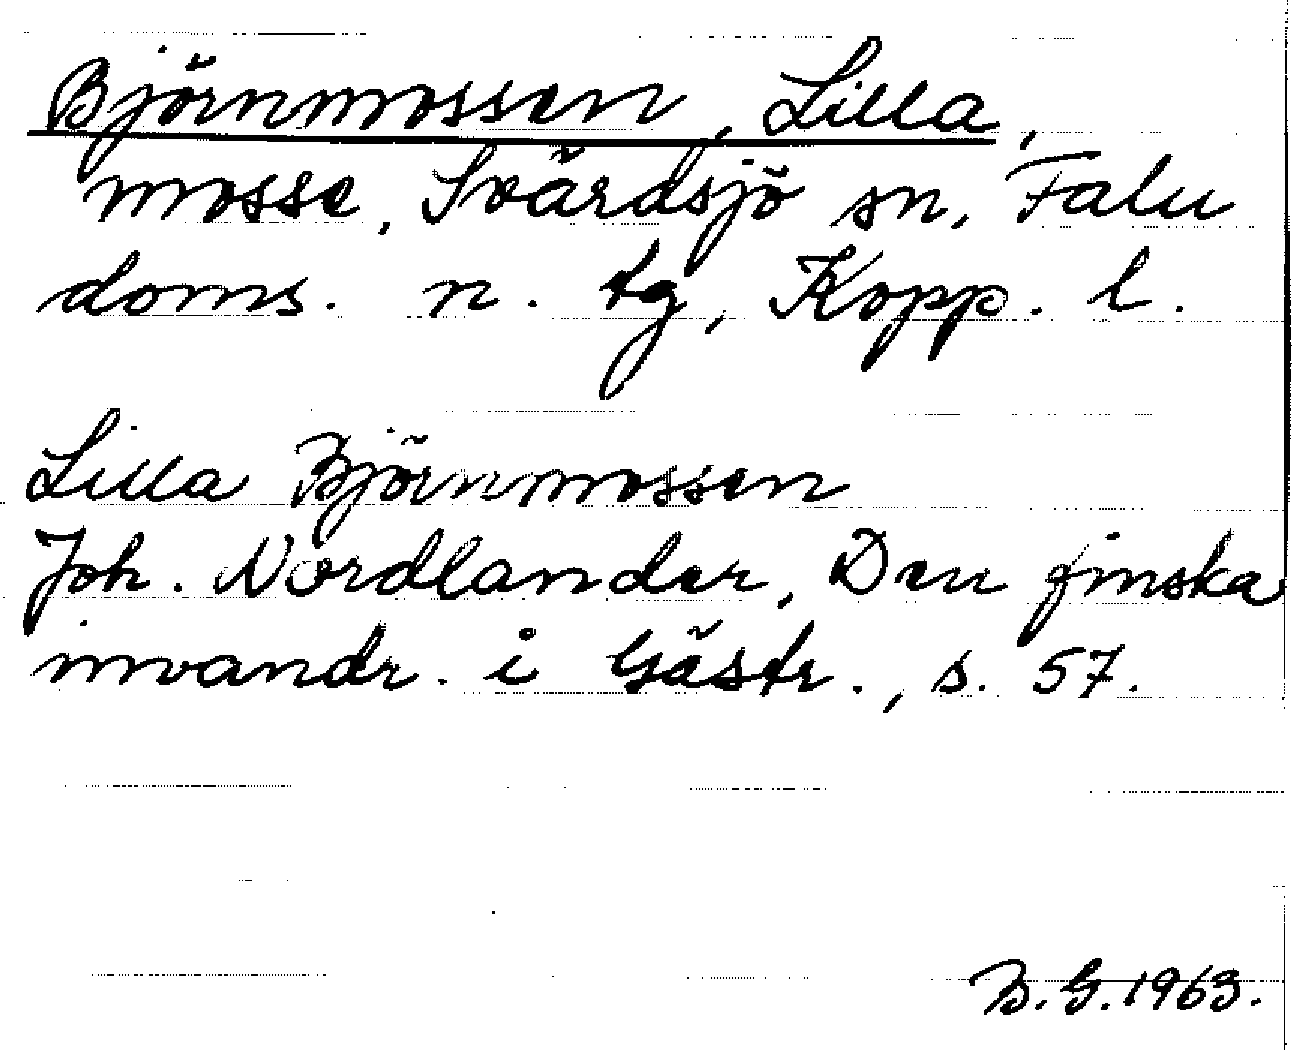 Björnmossen, Lilla,
mosse, Svärdsjö sn, Falu
doms. n. tg, Kopp. l.
Lilla Björnmossen
Joh. Nordlander, Den finska
invandr. i Gästr., s. 57.
B.G. 1963.